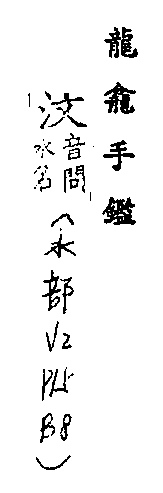 龍龕手鑑
「汶音問水名」(水部V2P15B8)